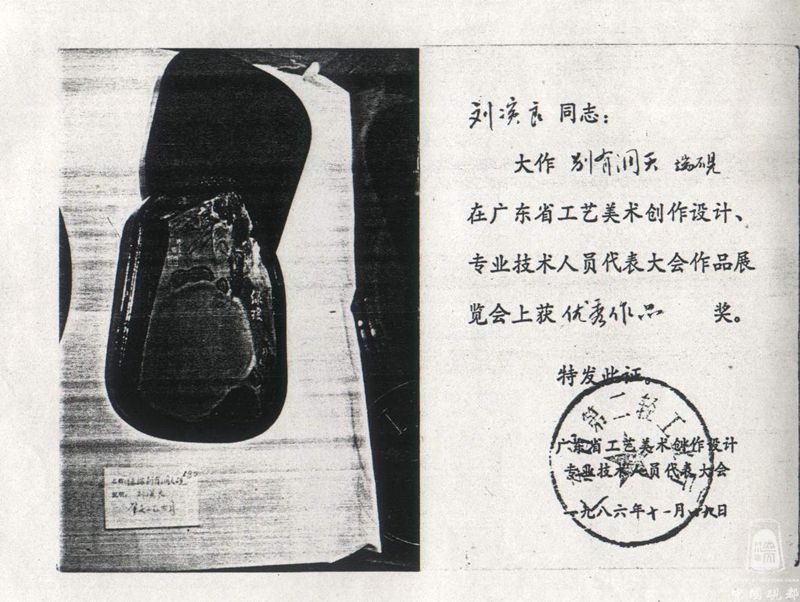 刘演良 同志：
大作 别有洞天 端砚
在广东省工艺美术创作设计、
专业技术人员代表大会作品展
览会上获 优秀作品 奖。
特发此证。
第二轻工
广东省工艺美术创作设计
专业技术人员代表大会
一九八六年十一月 日
端
中国砚都